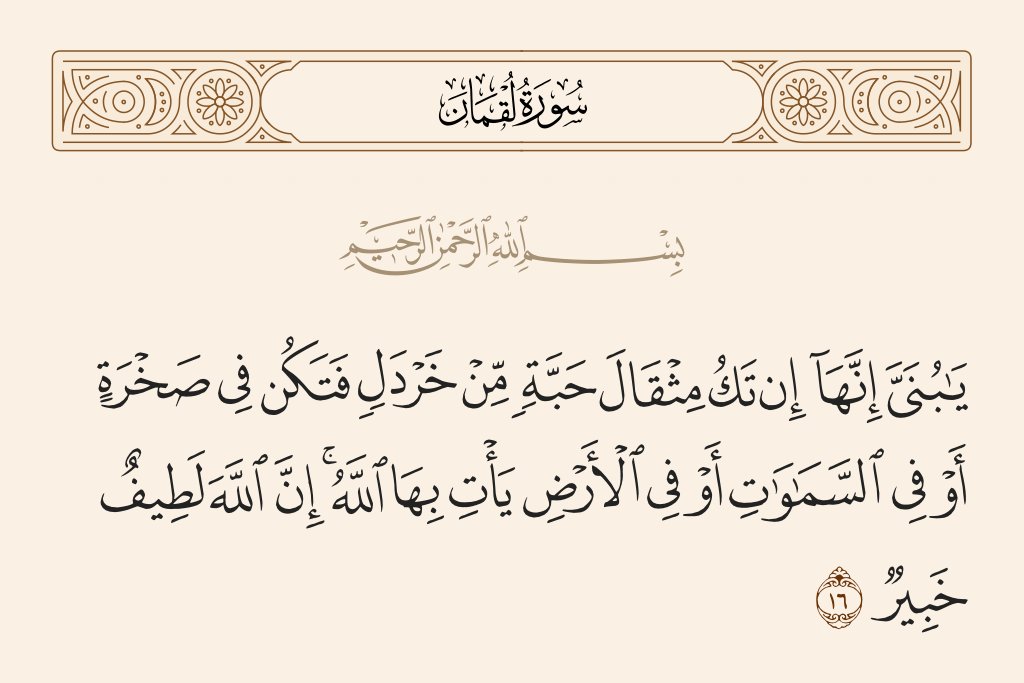 سُورَةُ لُقْمَان
بِسْمِ ٱللَّهِ ٱلرَّحْمَٰنِ ٱلرَّحِيمِ
يَٰبُنَىَّ إِنَّهَآ إِن تَكُ مِثْقَالَ حَبَّةٍ مِّنْ خَرْدَلٍ فَتَكُن فِى صَخْرَةٍ
أَوْ فِى ٱلسَّمَٰوَٰتِ أَوْ فِى ٱلْأَرْضِ يَأْتِ بِهَا ٱللَّهُ ۚ إِنَّ ٱللَّهَ لَطِيفٌ
خَبِيرٌ ١٦